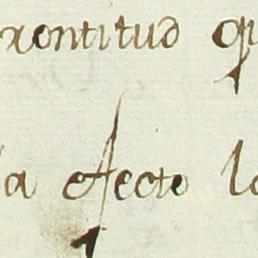 prontitud q
a efecto l